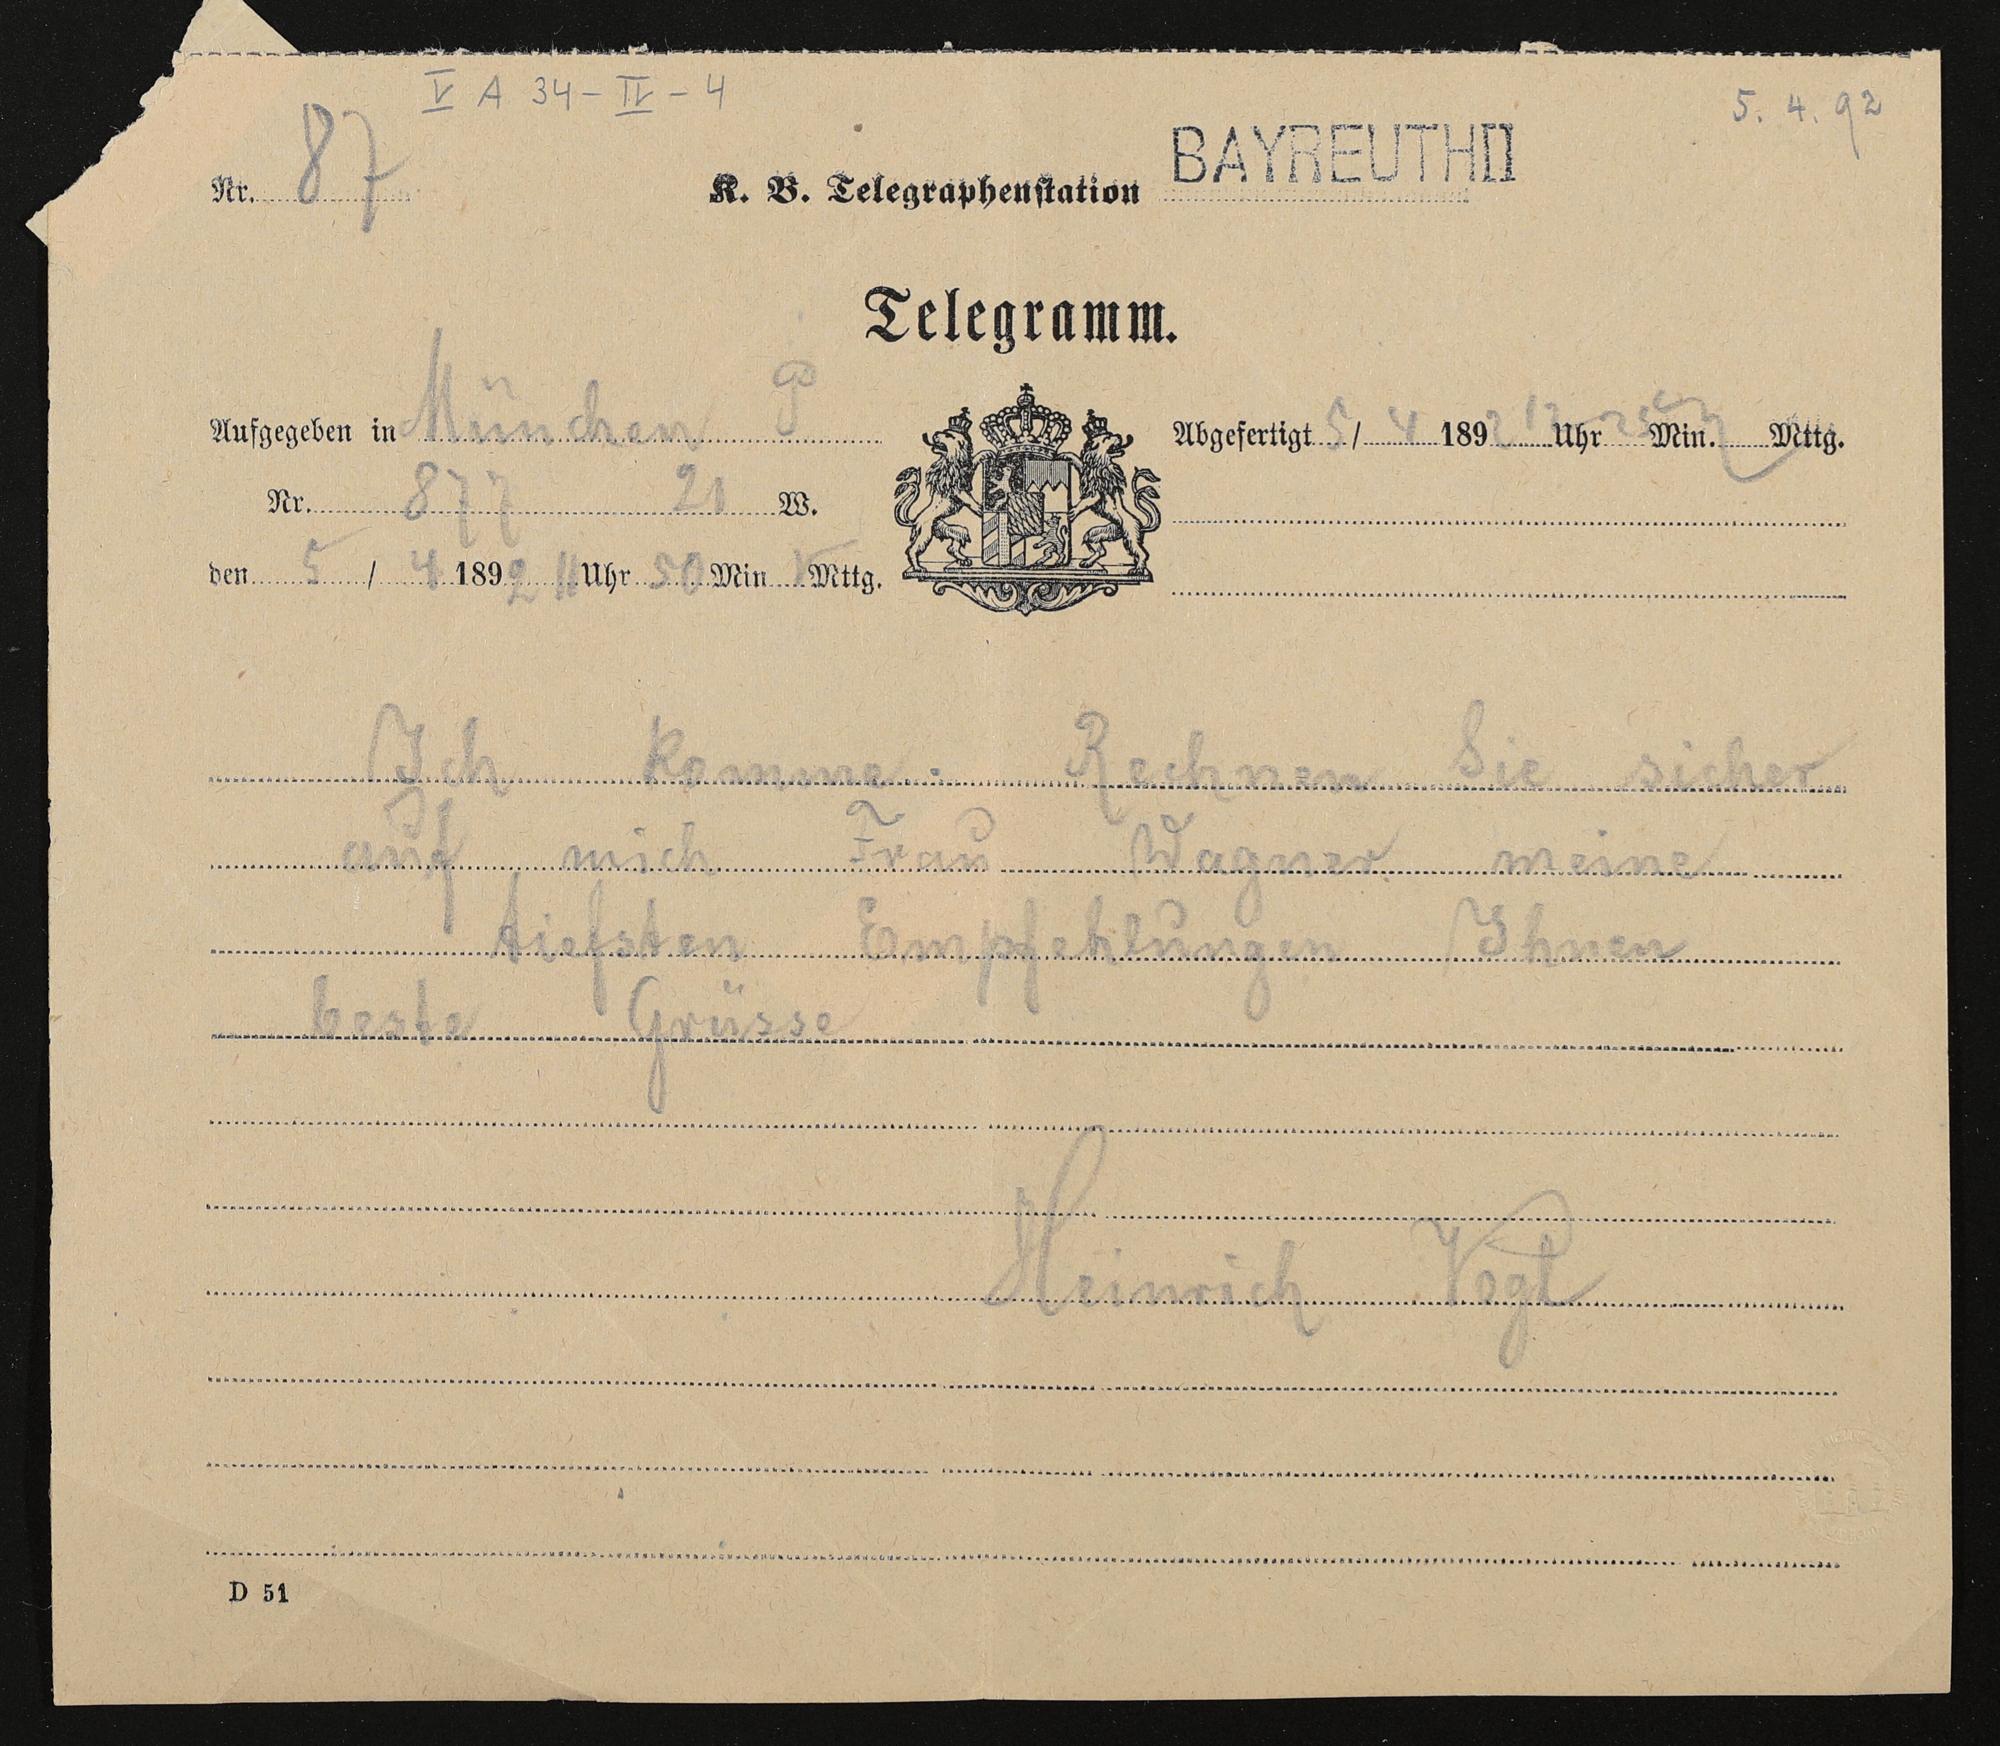 V A 34-IV-4
5. 4. 92
Nr. 87
K. B. Telegraphenstation BAYREUTH II
Telegramm.
Aufgegeben in München P
Abgefertigt 5 / 4 1892 12 Uhr Min. Mttg.
Nr. 877 21 W.
den 5 / 4 1892 11 Uhr 50 Min V Mttg.
Ich komme. Rechnen Sie sicher
auf mich Frau Wagner meine
tiefsten Empfehlungen Ihnen
beste Grüsse
Heinrich Vogl
D 51